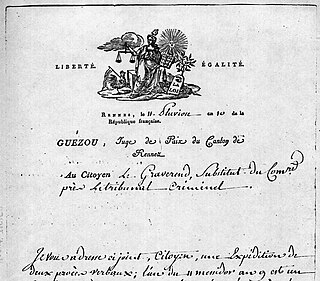 LIBERTÉ. ÉGALITÉ.
RENNES, le 11 Pluviose an 10e de la
République française.
GUÉZOU, Juge de Paix du Canton de
Rennes
Au Citoyen Le Graverend, Substitut du Comre
près le tribunal Criminel
Je vous adresse ci joint, Citoyen, une Expédition de
deux procès verbaux; l'un du 11 messidor an 9 est un